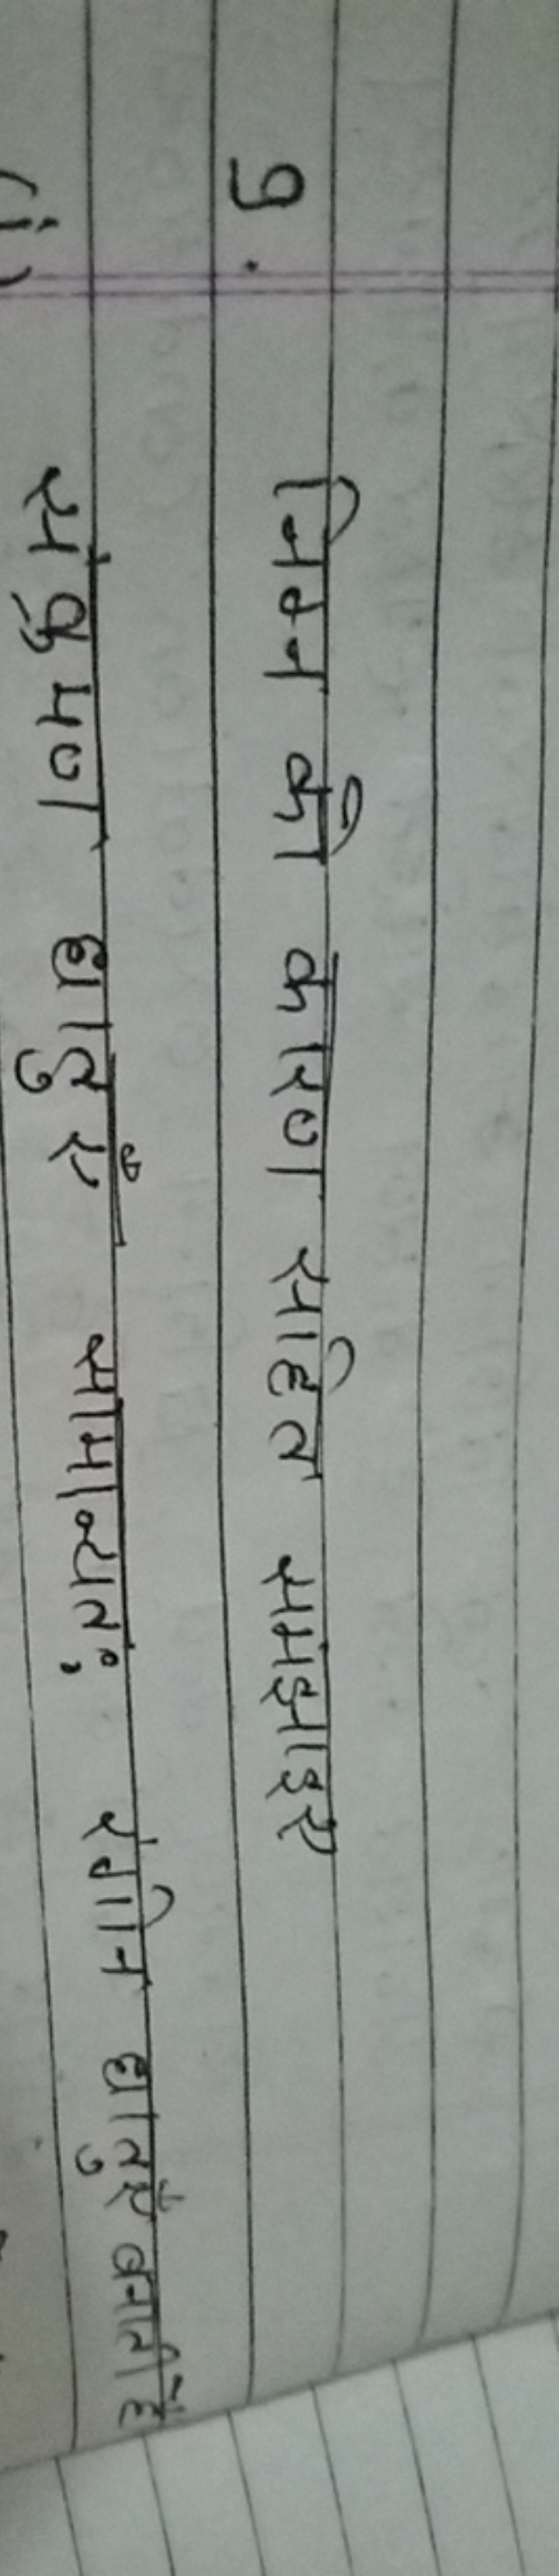 9. निम्न की कारण सहित समझाइए
(i) संक्रमण धातुएँ सामान्यतः रंगीन धातुएँ बनाती है